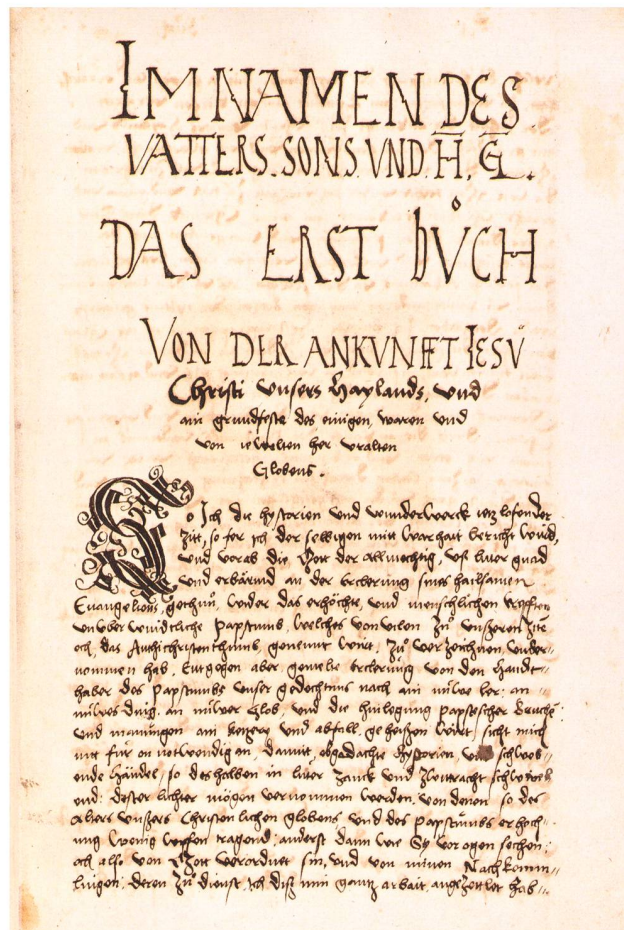 IM NAMEN DES
VATTERS. SONS VND. H. G.
DAS ERST bůCH
VON DER ANKVNFFT IESV
Christi vnsers Haylands, vnd
ain grundfeste des einigen, waren vnd
von welten her vralten
Globens.
So Ich die hystorien vnd wunderwerck ietz lofender
zitt, so fer ich der selbigen mitt warhait bericht wird,
vnd vorab die Gott der allmechtig, vß luter gnad
vnd erbärmd an der erclerung sines hailsamen
Euangelions, gethun, wider das erhöchte, vnd menschlichen
Papstumb, welches von vilen zu vnßeren Zite
och, das Antichristenthumb genemt wirt, zu verzeichnen vnder-
nommen hab, Entgegen aber, gemelte erclerung von den handt-
haber des Papstumbs vnser gedechtnus nach ain nüwe ler, an
nüwes ding, an nüwer Glob, vnd die hinlegung papstescher Bruche
vnd manungen am ketzery vnd abfall, geheißen wirt, sicht mich
nit für on nottwendig an, damit, obgedachte hystorien, vnd
ende händel, so deshalben in luter Zanck vnd Zwittracht
end, dester lichter mögen vernommen werden, von denen so des
alters vnßers Christenlichen globens vnd des papstumbs erhoch-
ung wenig wyssen tragend, anderst dann wie Sy vor ogen sechen,
och also von Gott verordnet sin, vnd von minen Nachkomm-
lingen, deren zu dienst, Ich diß min gantz arbait, angezettlet hab